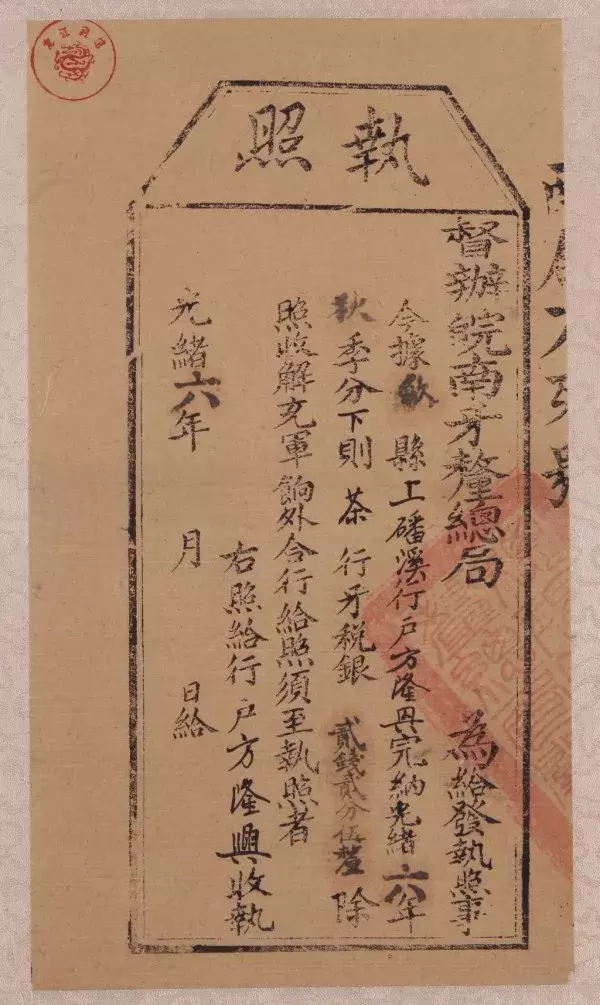 執照
督辦皖南牙釐總局　為給發執照事
今據歙縣上磻溪行戶方隆興完納光緒六年
秋季分下則茶行牙稅銀貳錢貳分伍釐除
照收解充軍餉外合行給照須至執照者
右照給行戶方隆興收執
光緒六年　月　日給